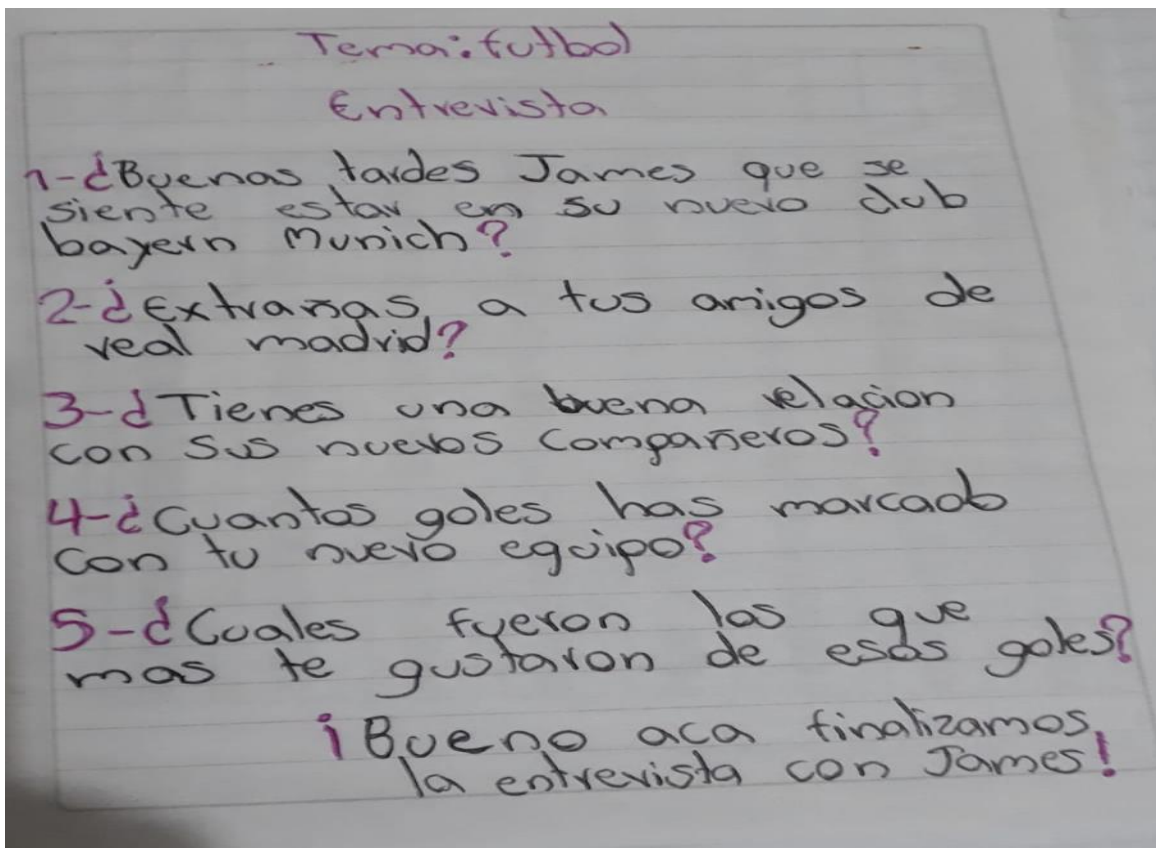 Tema: futbol
Entrevista
1-¿Buenas tardes James que se
siente estar en su nuevo club
bayern Munich?
2-¿Extrañas a tus amigos de
real madrid?
3-¿Tienes una buena relacion
con sus nuevos compañeros?
4-¿Cuantos goles has marcado
con tu nuevo equipo?
5-¿Cuales fueron los que
mas te gustaron de esos goles?
¡Bueno aca finalizamos
la entrevista con James!